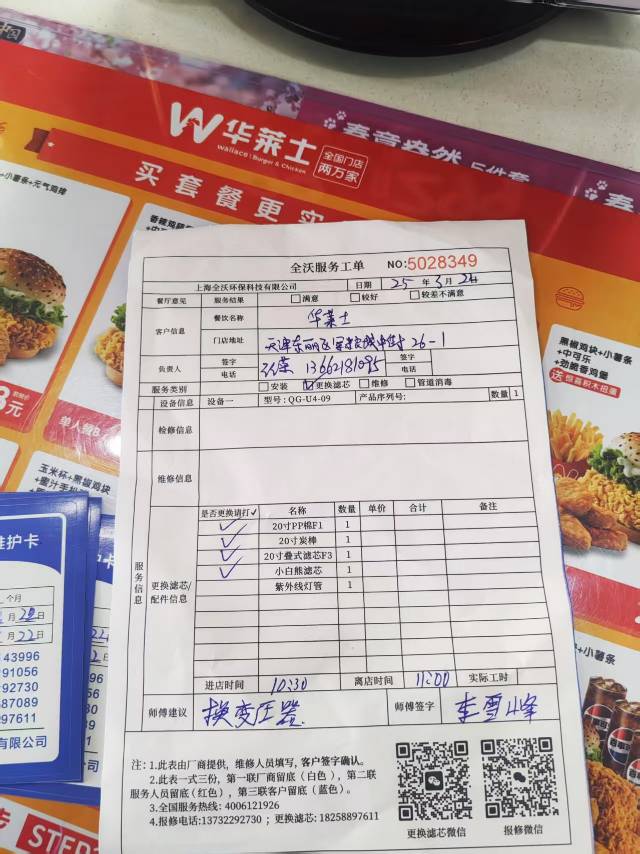 中国
W华莱士
Wallace | Burger & Chicken
全国门店
两万家
春意盎然 5件套
买套餐更实
+小薯条+元气鸡排
单人餐
玉米杯+黑椒鸡块+
蜜汁手
黑椒鸡块+小薯条
+中可乐
+劲脆香鸡堡
送 惊喜积木扭蛋
+小薯条
全沃服务工单 NO:5028349
上海全沃环保科技有限公司 日期 25 年 3 月 24
餐厅意见 服务结果 满意 较好 较差不满意
客户信息 餐饮名称 华莱士
门店地址 天津东丽区 26-1
负责人 签字 签字
电话 13662181095 电话
服务类别 安装 更换滤芯 维修 管道消毒
设备信息 设备一 型号: QG-U4-09 产品序列号: 数量 1
检修信息
维修信息
服务信息
更换滤芯/配件信息
是否更换请打✓ 名称 数量 单价 合计 备注
✓ 20寸PP棉F1 1
✓ 20寸炭棒 1
✓ 20寸叠式滤芯F3 1
✓ 小白熊滤芯 1
紫外线灯管 1
进店时间 10:30 离店时间 11:00 实际工时
师傅建议 换变压器 师傅签字 李雪峰
注: 1.此表由厂商提供, 维修人员填写, 客户签字确认。
2.此表一式三份, 第一联厂商留底(白色), 第二联
服务人员留底(红色), 第三联客户留底(蓝色)。
3.全国服务热线: 4006121926
4.报修电话:13732292730 ; 更换滤芯: 18258897611
更换滤芯微信 报修微信
维护卡
个月
月 20 日
月 22 日
43996
91056
92730
587089
97611
有限公司
STEP